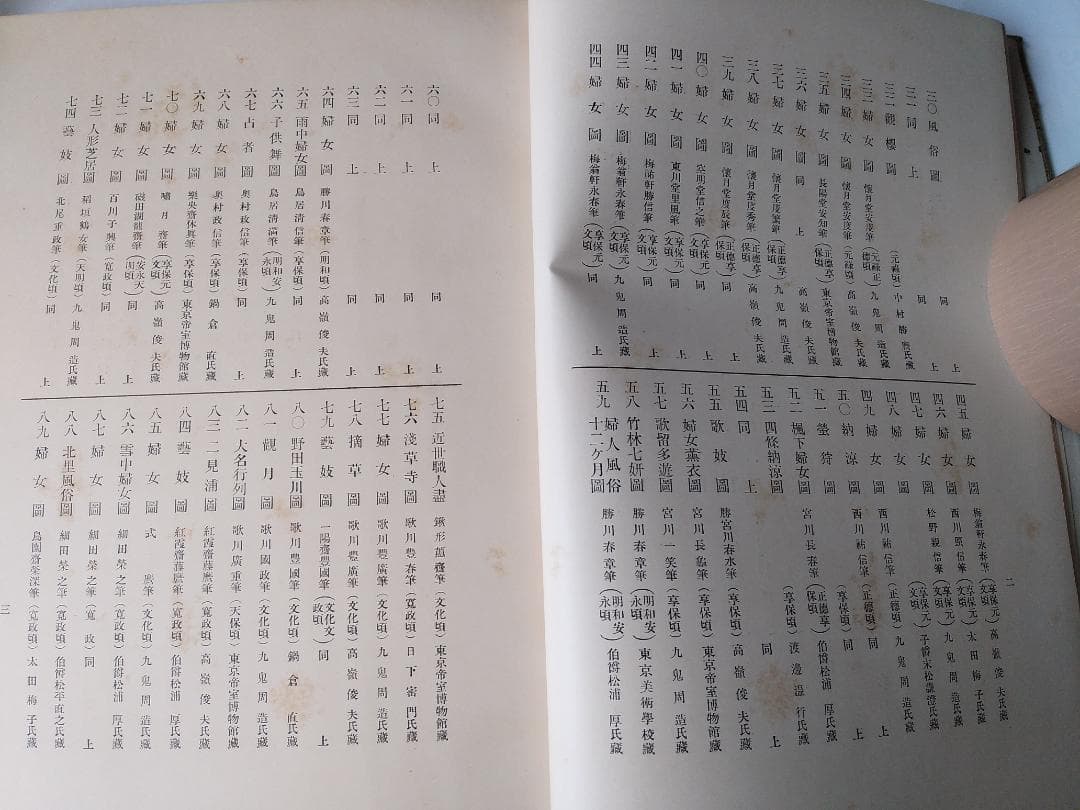 二
三〇風俗圖 (元祿頃) 中村勝 氏藏
三一同上 同上
三二觀樓圖 同上
三三婦女圖 懷月堂安度筆 (元祿正德頃) 九鬼周造氏藏
三四婦女圖 懷月堂安度筆 (元祿頃) 高嶺俊夫氏藏
三五婦女圖 長陽堂安知筆 (正德享保頃) 東京帝室博物館藏
三六婦女圖 同上 高嶺俊夫氏藏
三七婦女圖 懷月堂度繁筆 (正德享保頃) 九鬼周造氏藏
三八婦女圖 懷月堂度秀筆 (正德享保頃) 高嶺俊夫氏藏
三九婦女圖 懷月堂度辰筆 (正德享保頃) 同上
四〇婦女圖 空明堂信之筆 (享保元文頃) 同上
四一婦女圖 東川堂里風筆 (享保元文頃) 同上
四二婦女圖 梅祐軒勝信筆 (享保元文頃) 同上
四三婦女圖 梅翁軒永春筆 (享保元文頃) 九鬼周造氏藏
四四婦女圖 梅翁軒永春筆 (享保元文頃) 同上
四五婦女圖 梅翁軒永春筆 (享保元文頃) 高嶺俊夫氏藏
四六婦女圖 西川照信筆 (享保元文頃) 太田梅子氏藏
四七婦女圖 松野親信筆 (享保元文頃) 九鬼周造氏藏
四八婦女圖 (享保元文頃) 子爵末松謙澄氏藏
四九婦女圖 西川祐信筆 (正德頃) 九鬼周造氏藏
五〇納涼圖 西川祐信筆 (正德頃) 同上
五一螢狩圖 (享保頃) 同上
五二楓下婦女圖 宮川長春筆 (正德享保頃) 伯爵松浦厚氏藏
五三四條納涼圖 (享保頃) 渡邊溫行氏藏
五四同上 同上
五五歌妓圖 勝宮川春水筆 (享保頃) 高嶺俊夫氏藏
五六婦女薰衣圖 宮川長龜筆 (享保頃) 東京帝室博物館藏
五七歌留多遊圖 宮川一笑筆 (享保頃) 九鬼周造氏藏
五八竹林七妍圖 勝川春章筆 (明和安永頃) 東京美術學校藏
五九婦人風俗十二ヶ月圖 勝川春章筆 (明和安永頃) 伯爵松浦厚氏藏
六〇同上 同上
六一同上 同上
六二同上 同上
六三同上 同上
六四婦女圖 勝川春章筆 (明和頃) 高嶺俊夫氏藏
六五雨中婦女圖 鳥居清信筆 (享保頃) 同上
六六子供舞圖 鳥居清滿筆 (明和安永頃) 九鬼周造氏藏
六七占者圖 奧村政信筆 (享保頃) 同上
六八婦女圖 奧村政信筆 (享保頃) 鍋倉直氏藏
六九婦女圖 樂央齋休眞筆 (享保頃) 東京帝室博物館藏
七〇婦女圖 嘯月齋筆 (享保元文頃) 高嶺俊夫氏藏
七一婦女圖 礒田湖龍齋筆 (安永天明頃) 同上
七二婦女圖 百川子興筆 (寬政頃) 同上
七三人形芝居圖 稻垣鶴女筆 (天明頃) 九鬼周造氏藏
七四藝妓圖 北尾重政筆 (文化頃) 同上
七五近世職人盡 鍬形蕙齋筆 (文化頃) 東京帝室博物館藏
七六淺草寺圖 歌川豐春筆 (寬政頃) 日下密門氏藏
七七婦女圖 歌川豐廣筆 (文化頃) 九鬼周造氏藏
七八摘草圖 歌川豐廣筆 (文化頃) 高嶺俊夫氏藏
七九藝妓圖 一陽齋豐國筆 (文化文政頃) 同上
八〇野田玉川圖 歌川豐國筆 (文化頃) 鍋倉直氏藏
八一觀月圖 歌川國政筆 (文化頃) 九鬼周造氏藏
八二大名行列圖 歌川廣重筆 (天保頃) 東京帝室博物館藏
八三二見浦圖 紅霞齋藤麿筆 (寬政頃) 高嶺俊夫氏藏
八四藝妓圖 紅霞齋藤麿筆 (寬政頃) 伯爵松浦厚氏藏
八五婦女圖 式麿筆 (文化頃) 九鬼周造氏藏
八六雪中婦女圖 細田榮之筆 (寬政頃) 伯爵松浦厚氏藏
八七婦女圖 細田榮之筆 (寬政) 同上
八八北里風俗圖 細田榮之筆 (寬政頃) 伯爵松平直之氏藏
八九婦女圖 鳥園齋榮深筆 (寬政頃) 太田梅子氏藏
三